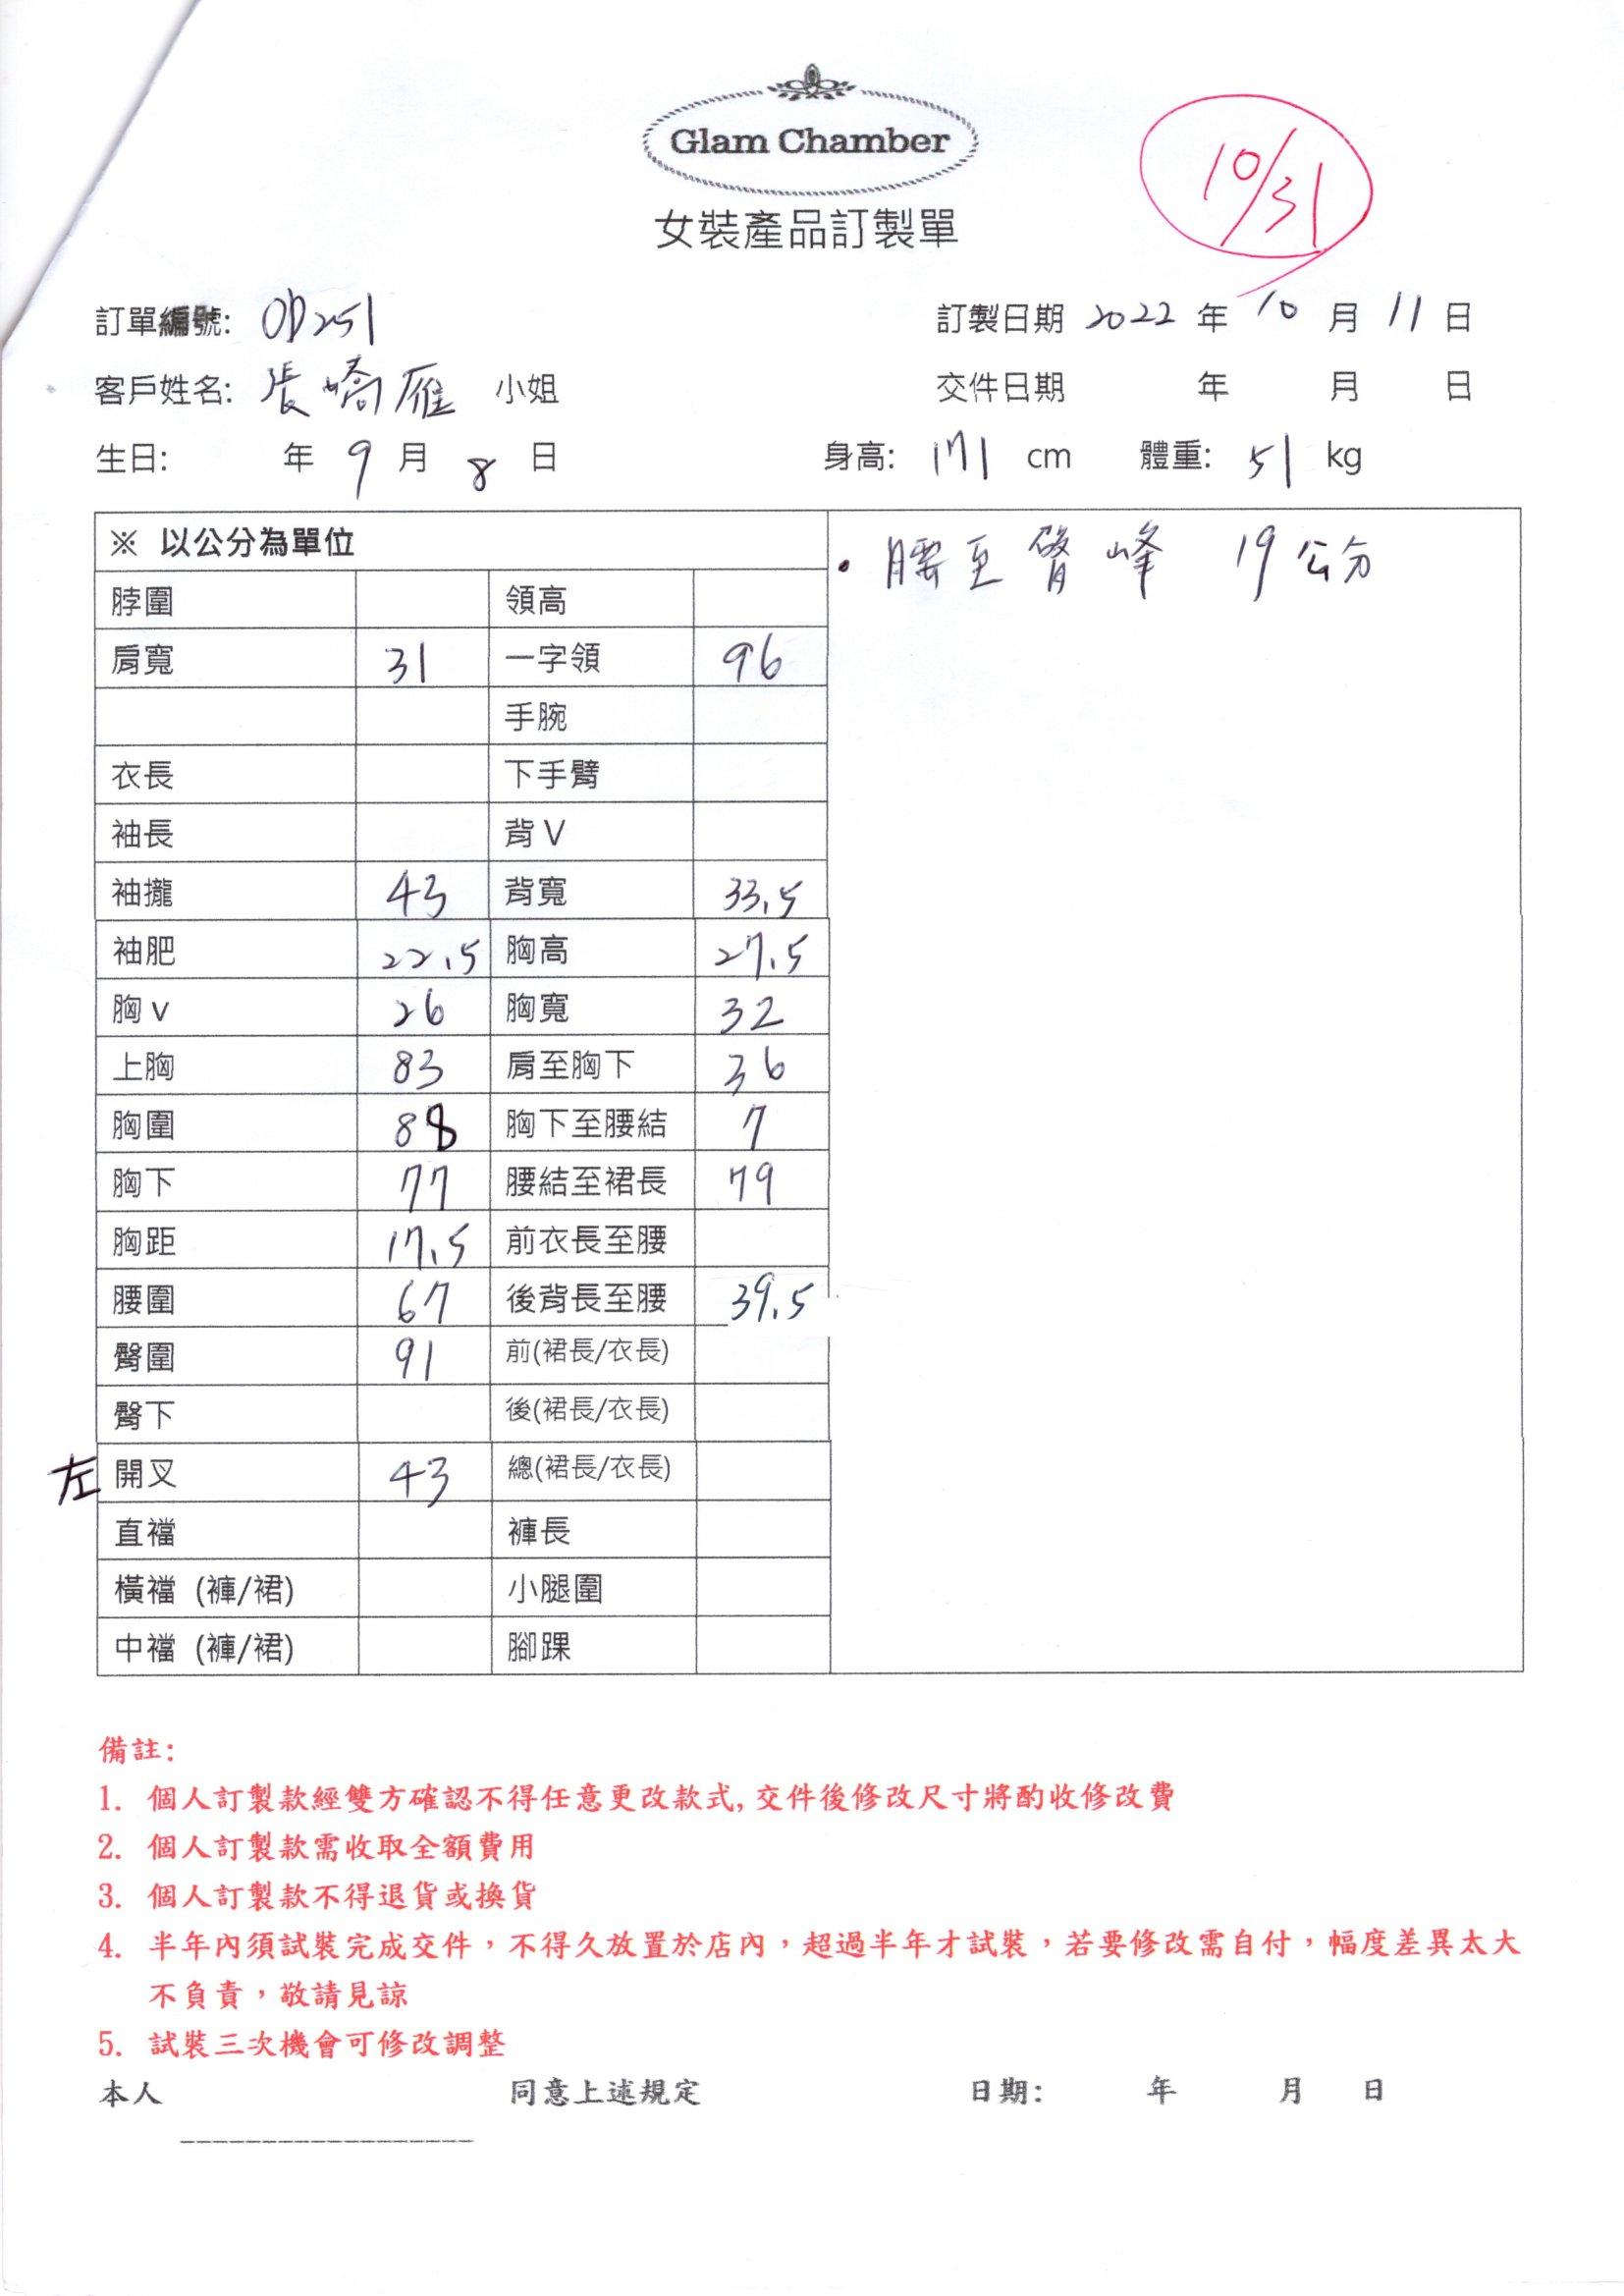 Glam Chamber
10/31
女裝產品訂製單
訂單編號: OD251 訂製日期 2022 年 10 月 11 日
客戶姓名: 張嶠雁 小姐 交件日期 年 月 日
生日: 年 9 月 8 日 身高: 171 cm 體重: 51 kg
※ 以公分為單位
• 腰至臀峰 19公分
脖圍 領高
肩寬 31 一字領 96
手腕
衣長 下手臂
袖長 背V
袖攏 43 背寬 33.5
袖肥 22.5 胸高 27.5
胸v 26 胸寬 32
上胸 83 肩至胸下 36
胸圍 88 胸下至腰結 7
胸下 77 腰結至裙長 79
胸距 17.5 前衣長至腰
腰圍 67 後背長至腰 39.5
臀圍 91 前(裙長/衣長)
臀下 後(裙長/衣長)
左 開叉 43 總(裙長/衣長)
直襠 褲長
橫襠 (褲/裙) 小腿圍
中襠 (褲/裙) 腳踝
備註:
1. 個人訂製款經雙方確認不得任意更改款式,交件後修改尺寸將酌收修改費
2. 個人訂製款需收取全額費用
3. 個人訂製款不得退貨或換貨
4. 半年內須試裝完成交件，不得久放置於店內，超過半年才試裝，若要修改需自付，幅度差異太大
不負責，敬請見諒
5. 試裝三次機會可修改調整
本人 同意上述規定 日期: 年 月 日